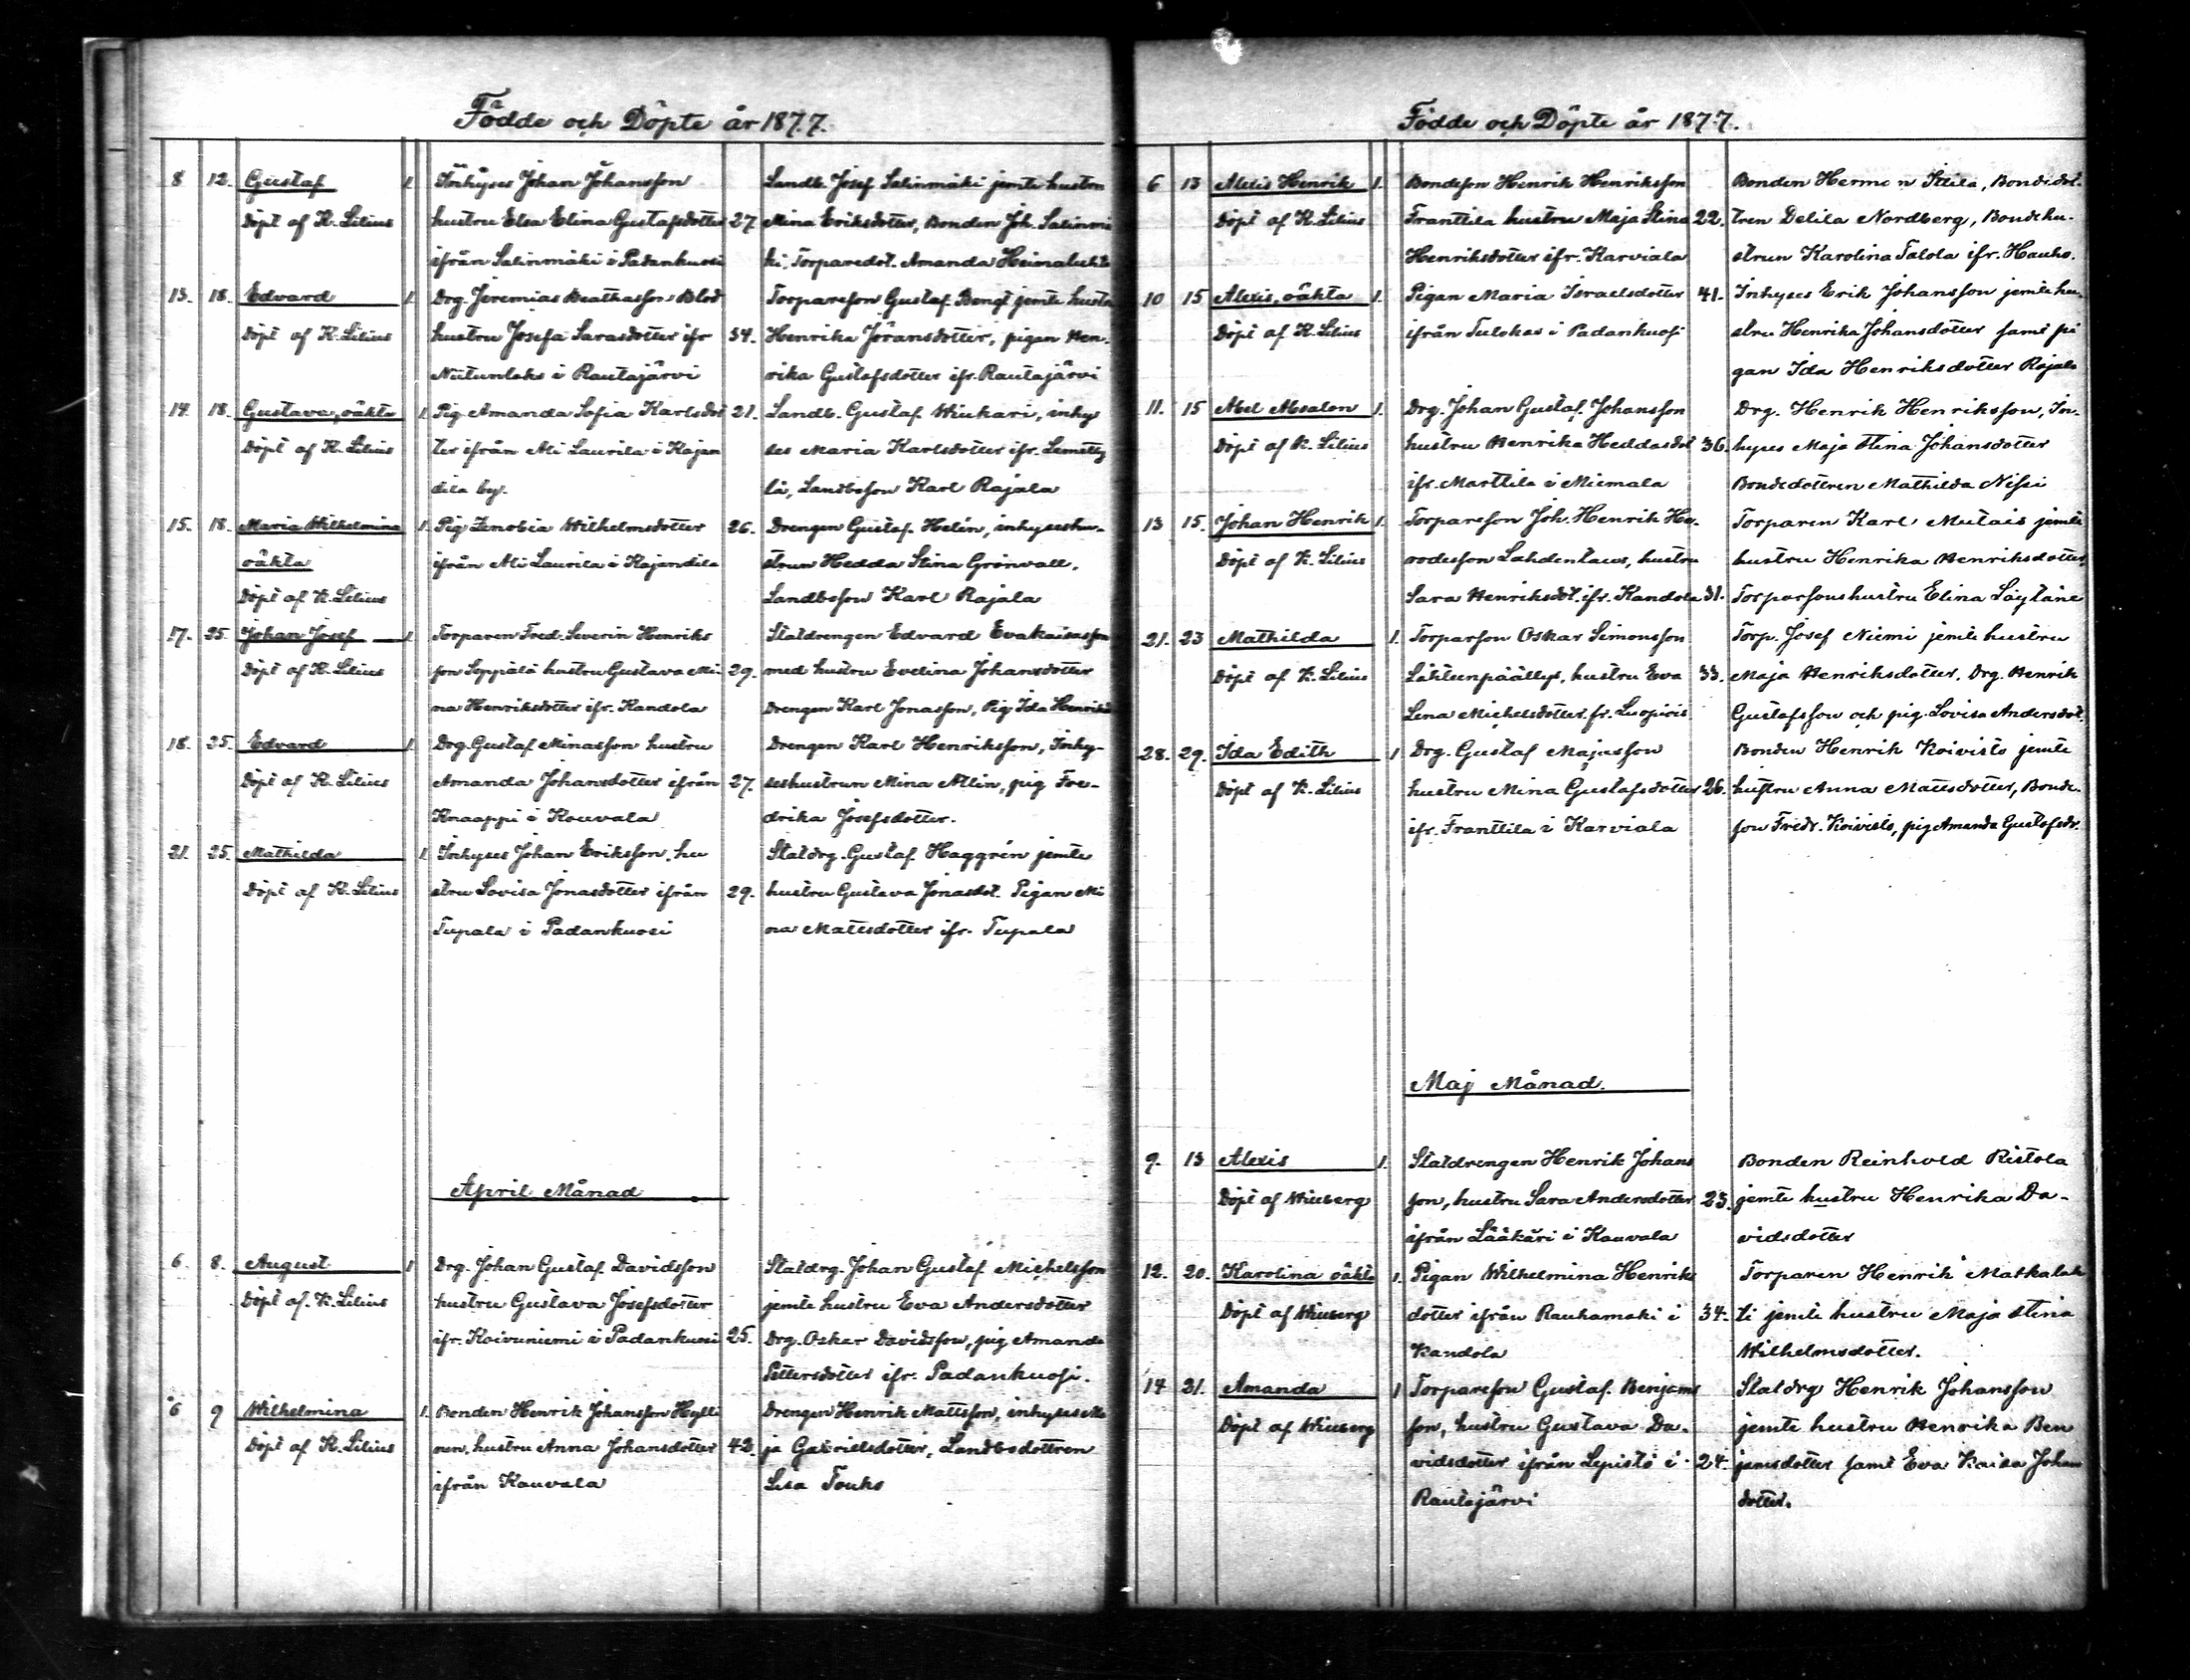 Födde och Döpte år 1877.
8 12. Gustaf 1. Inhyses Johan Johansson Landb. Josef Salinmäki jemte hustru
Döpt af K. Lilius hustru Elsa Elina Gustafsdotter 27 Mina Eriksdotter, Bonden Joh. Salinmä
ifrån Salinmäki i Padankuosi ki, Torparedot. Amanda Heinalahti
13. 18. Edvard 1. Drg. Jeremias Beathasson Blod Torpareson Gustaf Bengt jemte hustru
Döpt af K. Lilius hustru Josefa Sarasdotter ifr 34. Henrika Göransdotter, pigan Hen-
Niitunlaks i Rautajärvi rika Gustafsdotter ifr. Rautajärvi
14. 18. Gustava, oäkta 1. Pig. Amanda Sofia Karlsdot 21. Landb. Gustaf Wiukari, inhy
Döpt af K. Lilius ter ifrån Ali Laurila i Kajan ses Maria Karlsdotter ifr. Lemetty
dila by. lä, Landbosson Karl Rajala
15. 18. Maria Wilhelmina 1. Pig Zenobia Wilhelmsdotter 26. Drengen Gustaf Helén, inhyseshu-
oäkta ifrån Ali Laurila i Kajandila strun Hedda Stina Grönvall,
Döpt af K. Lilius Landbosson Karl Rajala
17. 25. Johan Josef 1. Torparen Fred. Severin Henriks Statdrengen Edvard Evakaisasson
Döpt af K. Lilius son Seppälä hustru Gustava Mi- 29. med hustru Evelina Johansdotter
na Henriksdotter ifr. Kandola Drengen Karl Jonasson, Pig Ida Henriks
18. 25. Edvard 1. Drg. Gustaf Minasson hustru Drengen Karl Henriksson, Inhy-
Döpt af K. Lilius Amanda Johansdotter ifrån 27. seshustrun Mina Alin, pig Fre-
Knaappi i Kouvala drika Josefsdotter.
21. 25. Mathilda 1. Inhyses Johan Eriksson, hu Statdrg. Gustaf Haggrén jemte
Döpt af K. Lilius stru Lovisa Jonasdotter ifrån 29. hustru Gustava Jonasdot. Pigan Mi
Tupala i Padankuosi na Mattsdotter ifr. Tupala
April Månad
6. 8. August 1 Drg. Johan Gustaf Davidsson Statdrg. Johan Gustaf Michelsson
Döpt af. K. Lilius hustru Gustava Josefsdotter jemte hustru Eva Andersdotter
ifr. Koivuniemi i Padankuosi 25. Drg. Oskar Davidsson, pig Amanda
Pettersdotter ifr. Padankuosi.
6 9 Wilhelmina 1. Bonden Henrik Johansson Hylli Drengen Henrik Mattsson, inhyses Ma
Döpt af K. Lilius nen, hustru Anna Johansdotter 42. ja Gabrielsdotter, Landbodottren
ifrån Kouvala Lisa Touko
Födde och Döpte år 1877.
6 13 Alexis Henrik 1. Bondeson Henrik Henriksson Bonden Herman Itkila, Bondedot-
Döpt af K. Lilius Franttila hustru Maja Stina 22. tren Delila Nordberg, Bondehu-
Henriksdotter ifr. Karviala strun Karolina Talola ifr. Hauho.
10 15 Alexis, oäkta 1. Pigan Maria Israelsdotter 41. Inhyses Erik Johansson jemte hu-
Döpt af K. Lilius ifrån Tulokas i Padankuosi stru Henrika Johansdotter samt pi
gan Ida Henriksdotter Rajala
11. 15 Abel Absalon 1. Drg. Johan Gustaf Johansson Drg. Henrik Henriksson, In-
Döpt af K. Lilius hustru Henrika Heddasdot 36. hyses Maja Stina Johansdotter
ifr. Marttila i Miemala Bondedottren Mathilda Nissi
13 15. Johan Henrik 1. Torpareson Joh. Henrik He- Torparen Karl Mutais jemte
Döpt af K. Lilius rodesson Lahdentaus, hustru hustru Henrika Henriksdotter,
Sara Henriksdot. ifr. Kandola 31. Torparsonshustru Elina Löytäne
21. 23 Mathilda 1. Torparson Oskar Simonsson Torp. Josef Niemi jemte hustru
Döpt af K. Lilius Lähteenpäällys, hustru Eva 33. Maja Henriksdotter, Drg. Henrik
Lena Michelsdotter fr. Luopiois Gustafsson och pig. Lovisa Andersdot.
28. 29. Ida Edith 1 Drg. Gustaf Majasson Bonden Henrik Koivisto jemte
Döpt af K. Lilius hustru Mina Gustafsdotter 26. hustru Anna Mattsdotter, Bonde-
ifr. Franttila i Karviala son Fredr. Koivisto, pig Amanda Gustafsdr.
Maj Månad.
9. 13 Alexis 1. Statdrengen Henrik Johans Bonden Reinhold Ristola
Döpt af Wiberg son, hustru Sara Andersdotter 23. jemte hustru Henrika Da-
ifrån Lääkäri i Kouvala vidsdotter
12. 20. Karolina oäkta 1. Pigan Wilhelmina Henriks Torparen Henrik Matkalah
Döpt af Wiberg dotter ifrån Rauhamaki i 34. ti jemte hustru Maja Stina
Kandola Wilhelmsdotter.
14 21. Amanda 1 Torpareson Gustaf Benjams Statdrg Henrik Johansson
Döpt af Wiberg son, hustru Gustava Da- jemte hustru Henrika Ben
vidsdotter ifrån Lepistö i 24. jamsdotter samt Eva Kaisa Johans
Rautajärvi dotter.